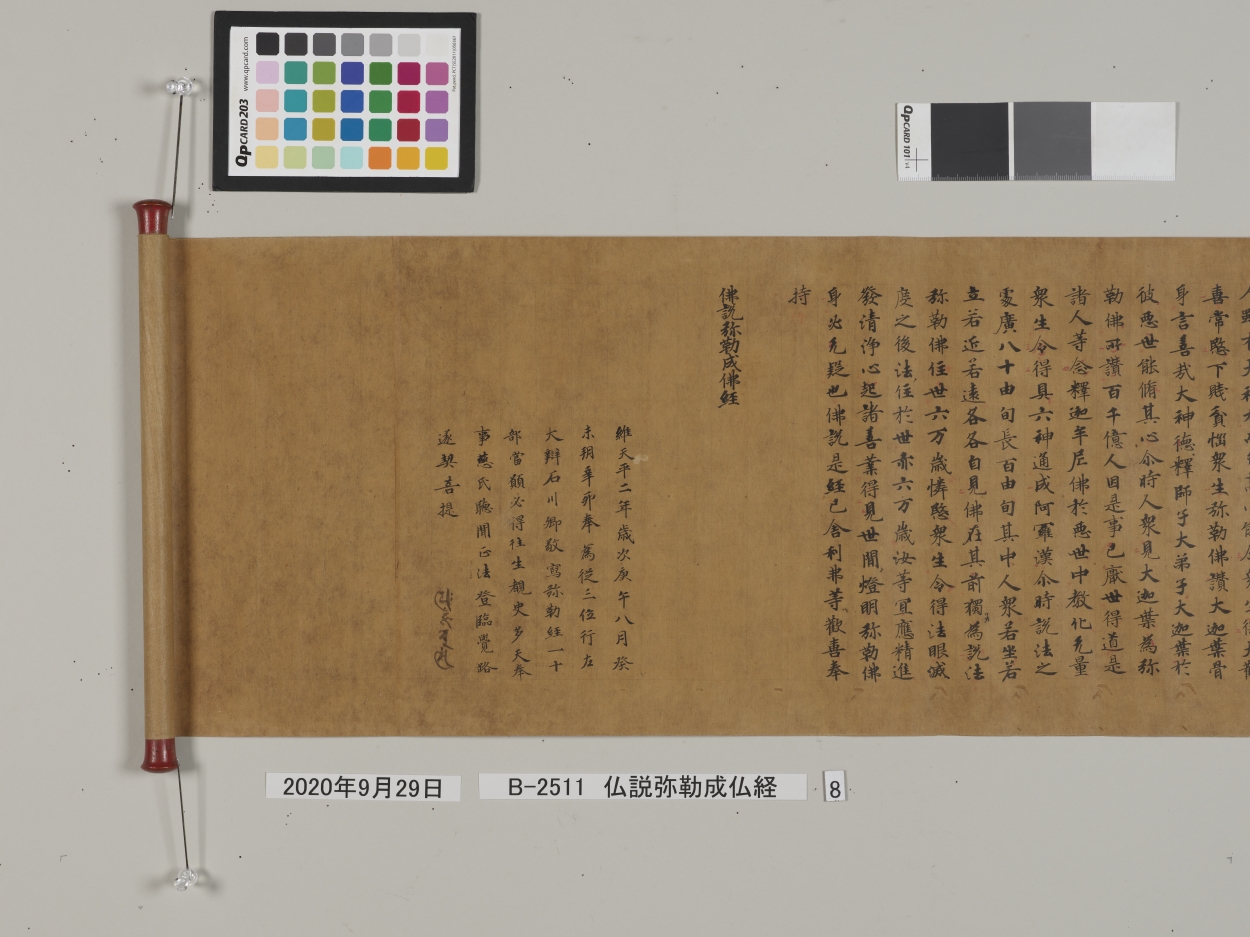 喜常愍下賤貧惱衆生弥勒佛讃大迦葉骨
身言善哉大神德釋師子大弟子大迦葉於
彼惡世能脩其心尒時人衆見大迦葉為弥
勒佛所讃百千億人因是事已厭世得道是
諸人等念釋迦牟尼佛於惡世中教化无量
衆生令得具六神通成阿羅漢尒時説法之
處廣八十由旬長百由旬其中人衆若坐若
立若近若遠各各自見佛在其前獨為説法
弥勒佛住世六万歳憐愍衆生令得法眼滅
度之後法住於世亦六万歳汝等宜應精進
發清浄心起諸善業得見世間燈明弥勒佛
身必无疑也佛説是經已舍利弗等歡喜奉
持
佛説弥勒成佛經
維天平二年歳次庚午八月癸
未朔辛卯奉為從三位行左
大辯石川卿敬寫弥勒經一十
部當願必得往生覩史多天奉
事慈氏聴聞正法登臨覺路
遂契菩提
QPCARD 203
www.qpcard.com
QPCARD 101
2020年9月29日
B-2511 仏説弥勒成仏経
8